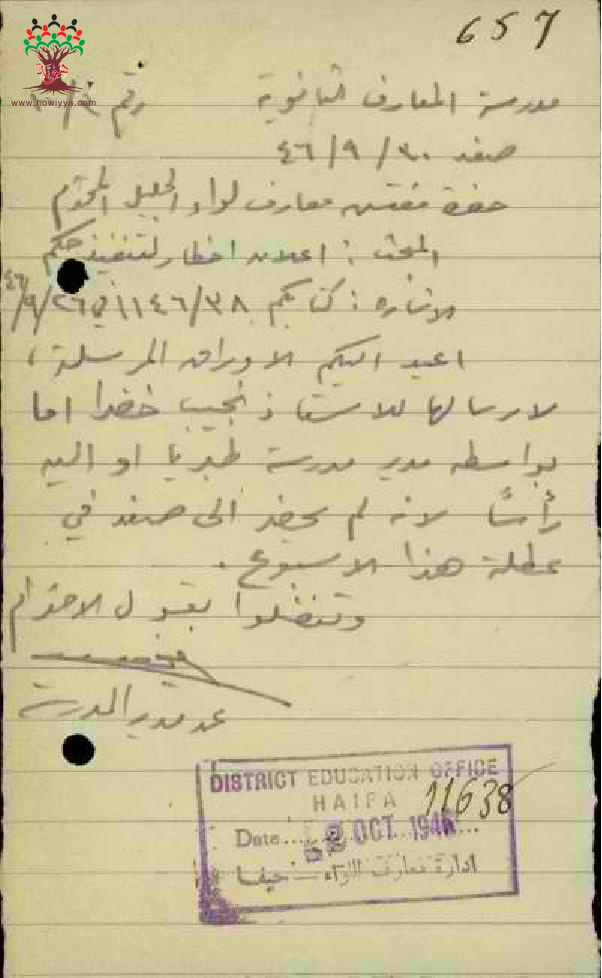 657
www.howiyya.com
مدرسة المعارف الثانوية رقم
صفد ٣٠/٩/٤٦
حضرة مفتش معارف لواء الجليل المحترم
المبحث : اعلان اخطار لتنفيذ حكم
الاشارة : كتابكم ١١٤٦/٣٨ في ٢٦/٩/٤٦
اعيد اليكم الاوراق المرسلة ،
لارسالها للاستاذ نجيب خضرا اما
بواسطه مدير مدرسة طبريا او اليه
رأسًا لانه لم يحضر الى صفد في
عطلة هذا الاسبوع .
وتفضلوا بقبول الاحترام
عن مدير المدرسة
DISTRICT EDUCATION OFFICE
HAIFA 11638
Date.... 2 OCT. 1946...
ادارة معارف اللواء – حيفا